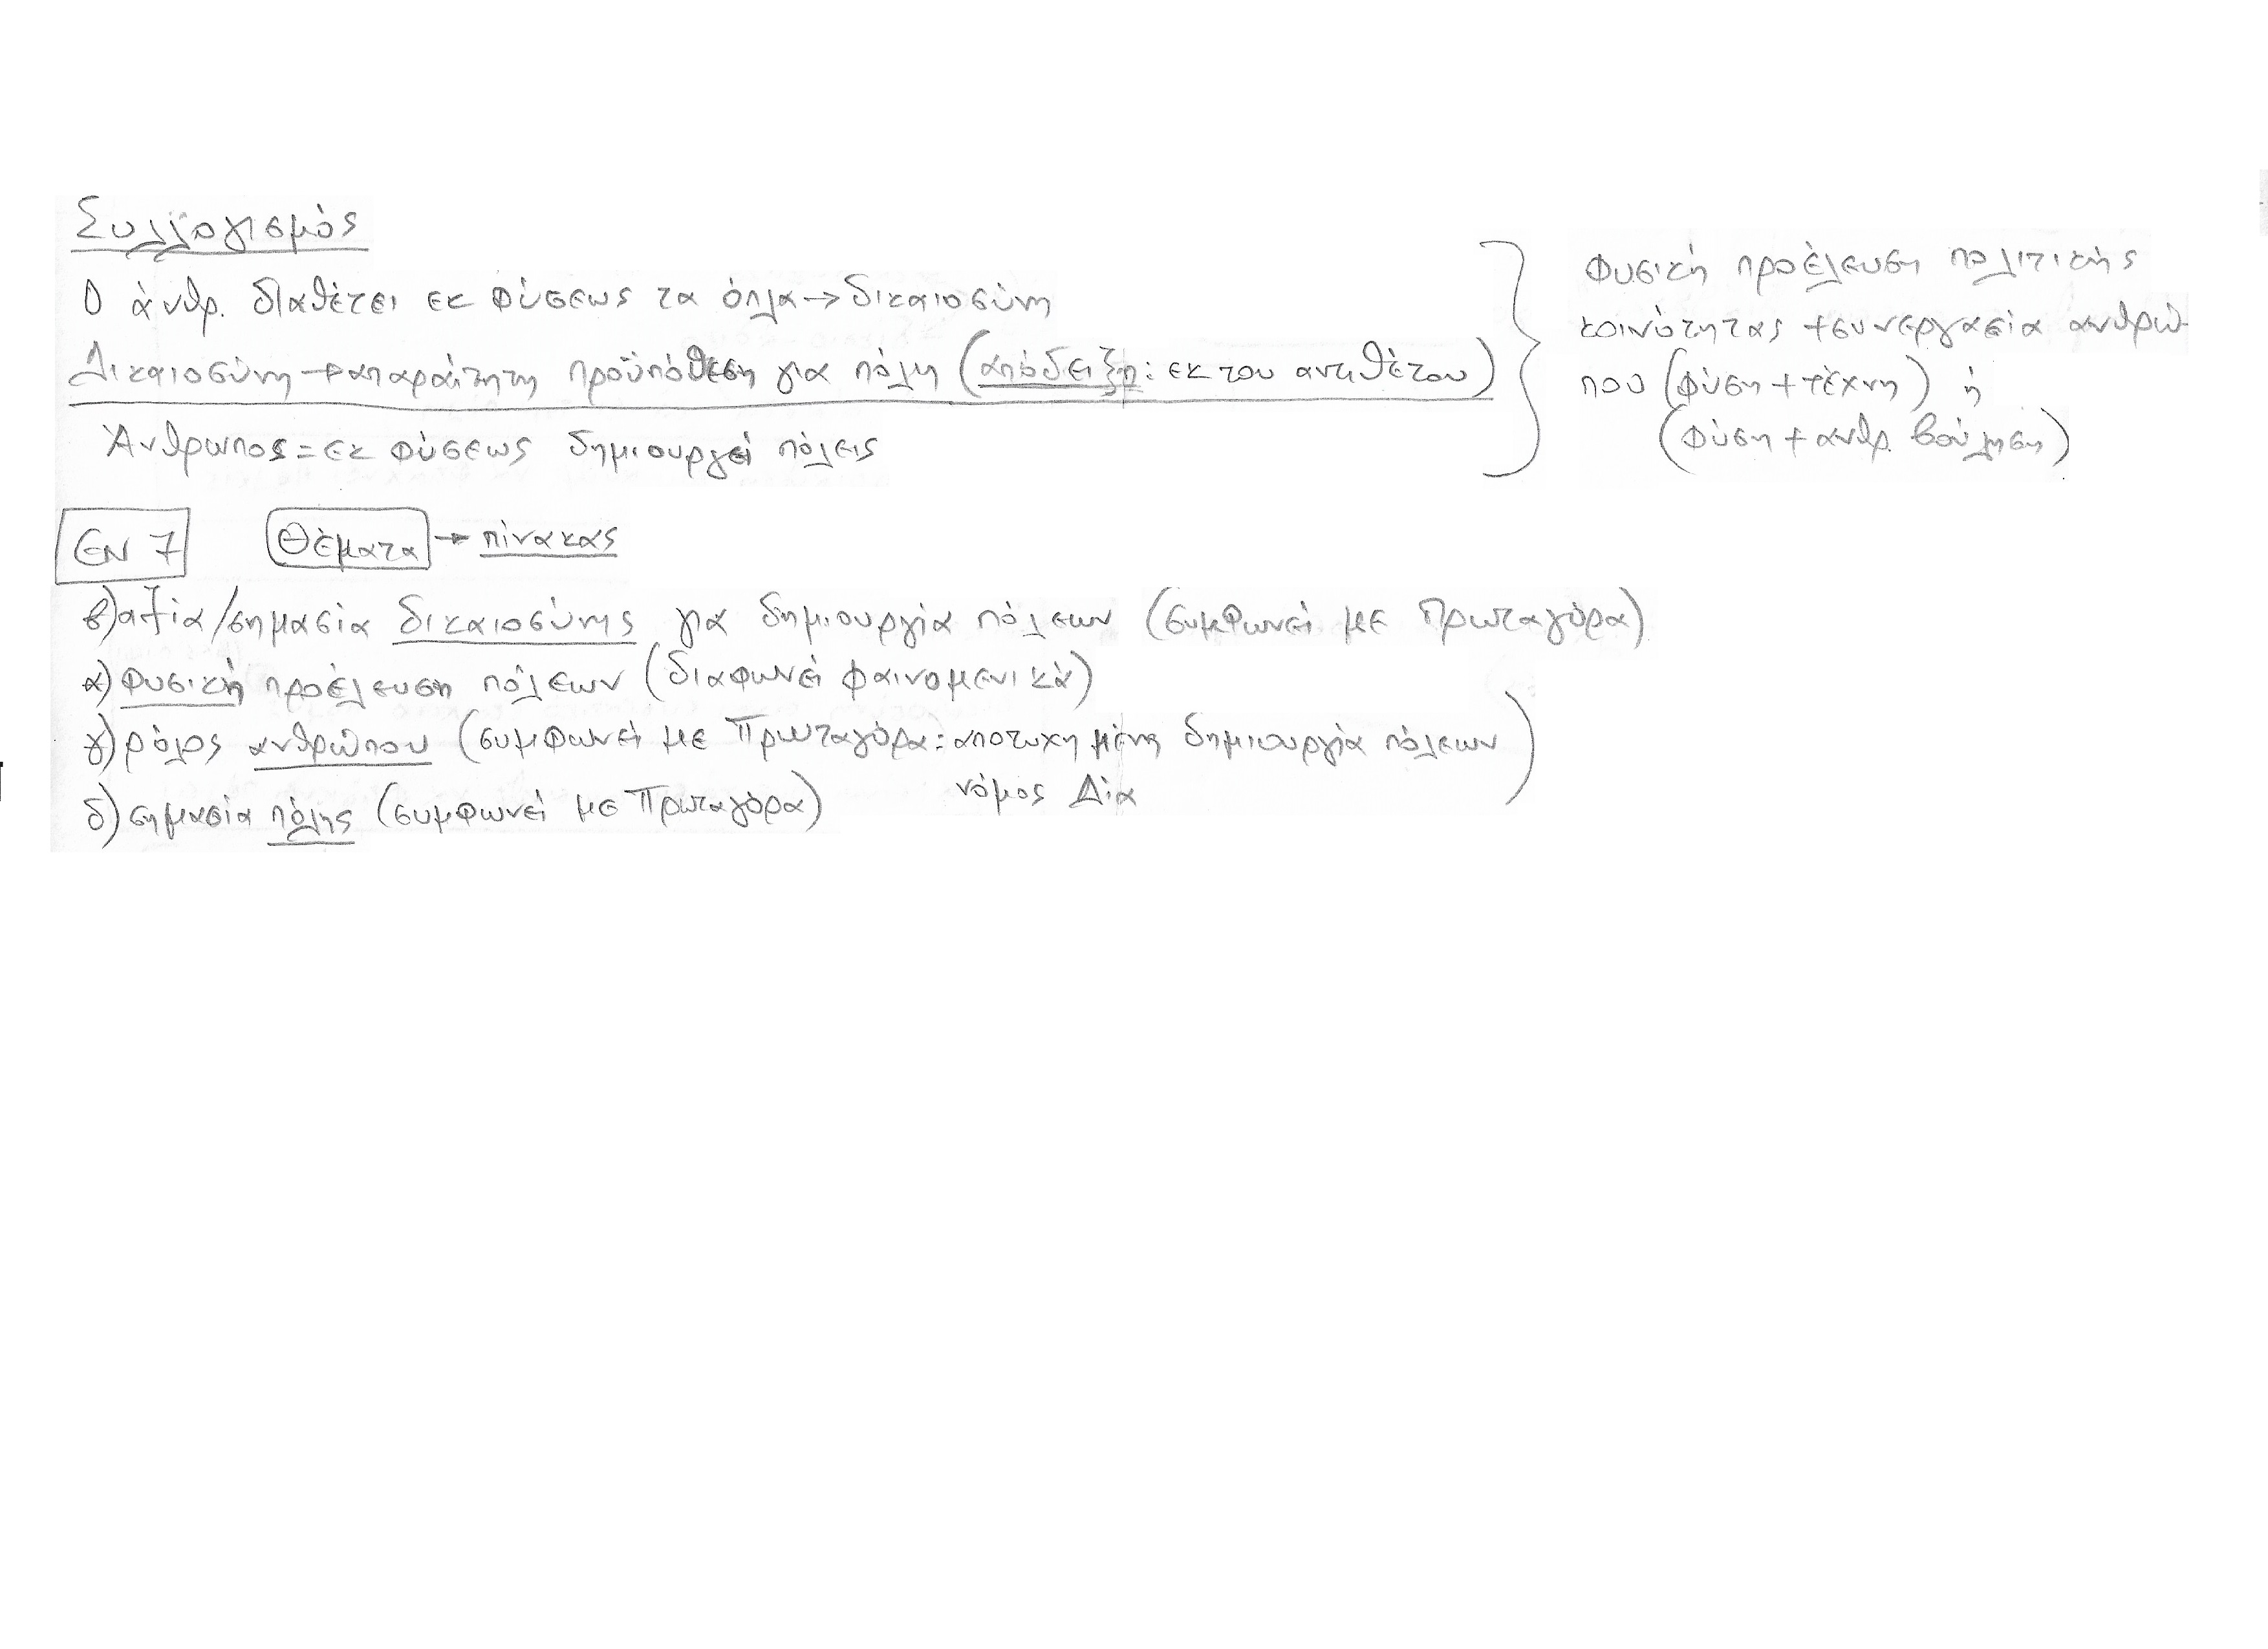 Συλλογισμός
Ο άνθρ. διαθέτει εκ φύσεως τα όπλα → δικαιοσύνη
Δικαιοσύνη → απαραίτητη προϋπόθεση για πόλη (απόδειξη: εκ του αντιθέτου)
Άνθρωπος = εκ φύσεως δημιουργεί πόλεις
Φυσική προέλευση πολιτικής
κοινότητας + συνεργασία ανθρώ-
που (φύση + τέχνη) ή
(φύση + ανθρ. βούληση)
ΕΝ 7 Θέματα → πίνακας
β) αξία/σημασία δικαιοσύνης για δημιουργία πόλεων (συμφωνεί με Πρωταγόρα)
α) φυσική προέλευση πόλεων (διαφωνεί φαινομενικά)
γ) ρόλος ανθρώπου (συμφωνεί με Πρωταγόρα: αποτυχημένη δημιουργία πόλεων
νόμος Δία)
δ) σημασία πόλης (συμφωνεί με Πρωταγόρα)